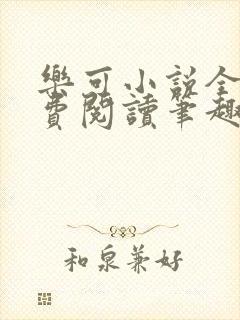 樂可小說全
費閱讀筆趣
和泉兼好